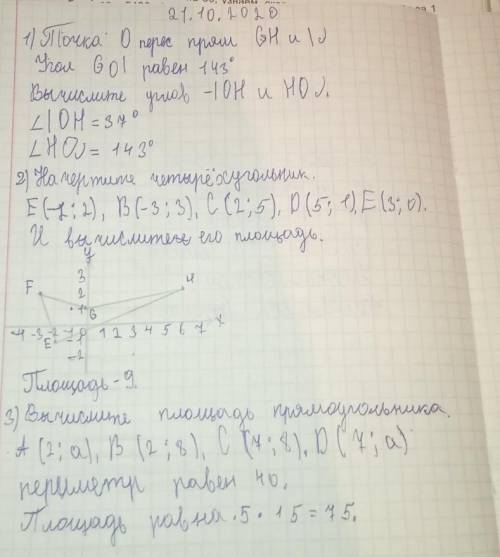 21.10.2020
1) Точка O перес прям GH и IJ
Угол GOI равен 143°
Вычислите углов -IOH и HOJ.
∠IOH = 37°
∠HOJ = 143°
2) Начертите четырёхугольник.
E(-1; 2), B(-3; 3), C(2; 5), D(5; 1), E(3; 0).
И вычислите его площадь.
y
3
F 2 H
1 G
-4 -3 -2 -1 0 1 2 3 4 5 6 7 x
E
-2
Площадь - 9.
3) Вычислите площадь прямоугольника.
A(2; a), B(2; 8), C(7; 8), D(7; a)
периметр равен 40.
Площадь равна 5 · 15 = 75.